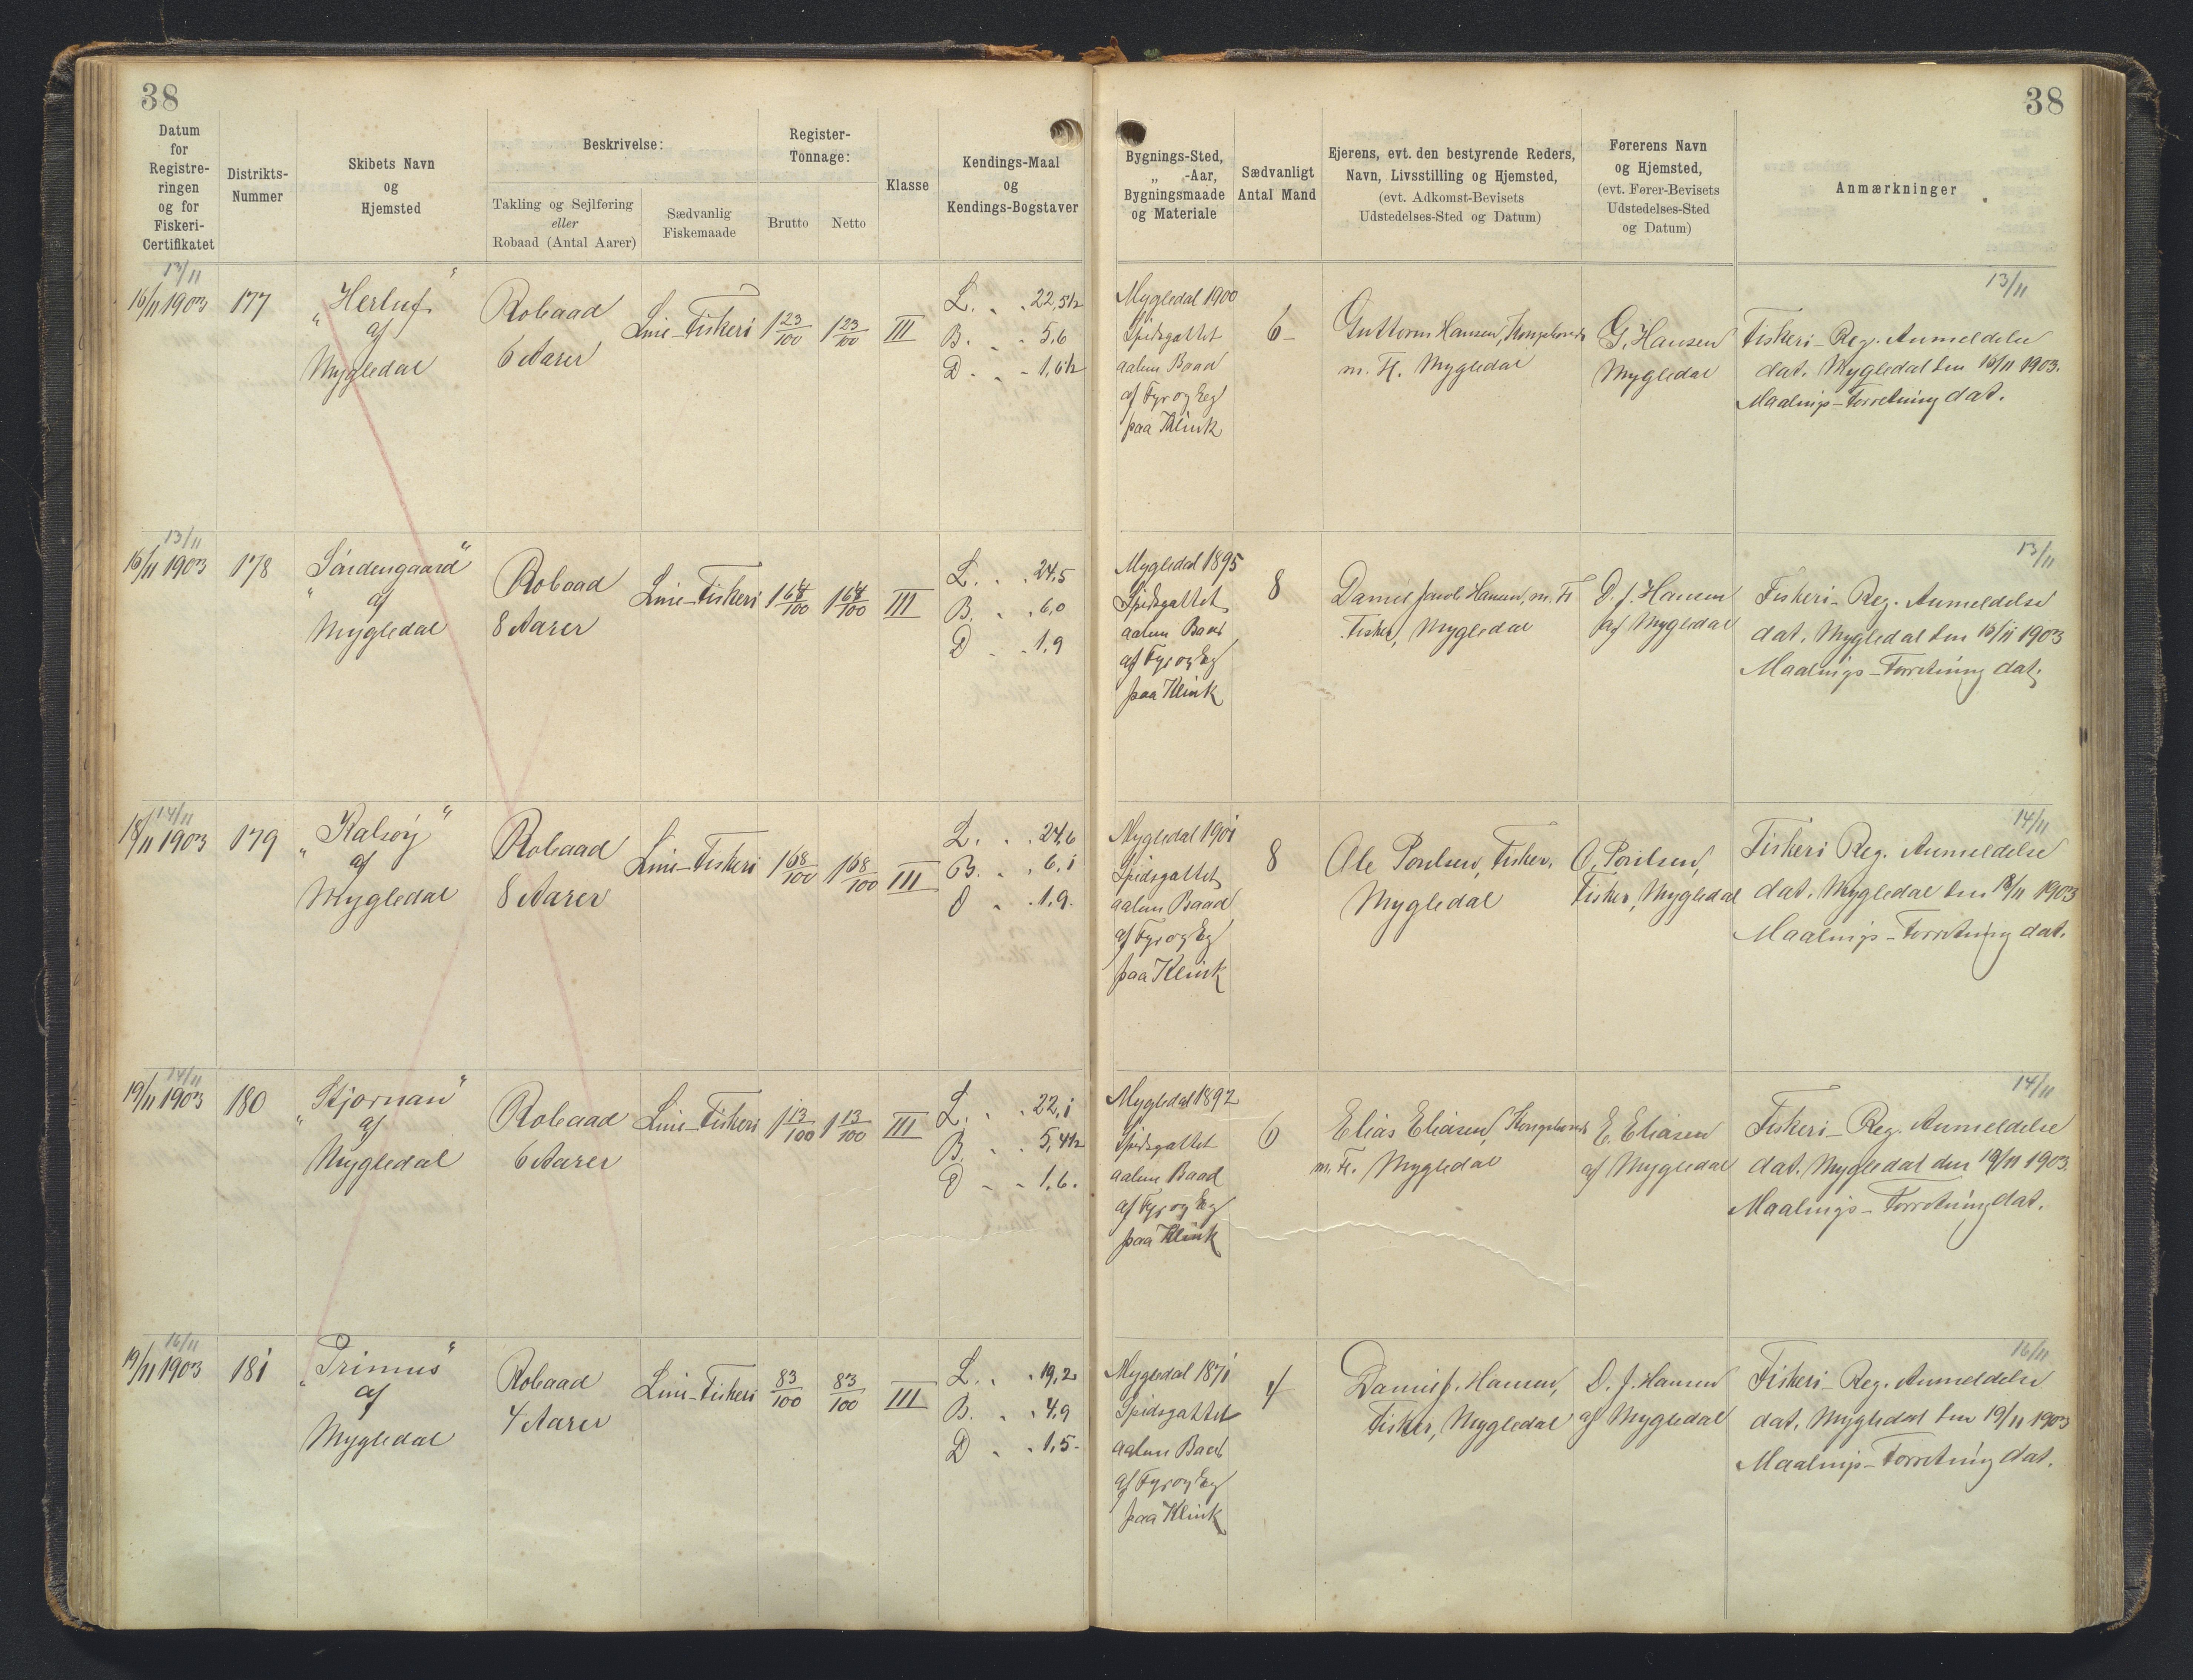 38
38
Datum
for
Registre-
ringen
og for
Fiskeri-
Certifikatet
Distrikts-
Nummer
Skibets Navn
og
Hjemsted
Beskrivelse:
Takling og Sejlføring
eller
Robaad (Antal Aarer)
Sædvanlig
Fiskemaade
Register-
Tonnage:
Brutto
Netto
Klasse
Kendings-Maal
og
Kendings-Bogstaver
Bygnings-Sted,
„ -Aar,
Bygningsmaade
og Materiale
Sædvanligt
Antal Mand
Ejerens, evt. den bestyrende Reders,
Navn, Livsstilling og Hjemsted,
(evt. Adkomst-Bevisets
Udstedelses-Sted og Datum)
Førerens Navn
og Hjemsted,
(evt. Fører-Bevisets
Udstedelses-Sted
og Datum)
Anmærkninger
13/11
16/11 1903
177
„Herluf“
af
Mygledal
Robaad
6 Aarer
Line-Fiskeri
1 23/100
1 23/100
III
L. . . 22,5½
B. . . 5,6
D. . . 1,6½
Mygledal 1900
Spidsgattet
aaben Baad
af Fyr og Eg
paa Klink
6
Guttorm Hansen, Kongsbonde
m. Fl. Mygledal
G. Hansen
Mygledal
13/11
Fiskeri-Reg. Anmeldelse
dat. Mygledal den 16/11 1903.
Maalings-Forretning dat.
13/11
16/11 1903
178
„ “
af
Mygledal
Robaad
8 Aarer
Line-Fiskeri
1 64/100
1 64/100
III
L. . . 24,5
B. . . 6,0
D . . 1,9
Mygledal 1895
Spidsgattet
aaben Baad
af Fyr og Eg
paa Klink
8
Daniel Jacob Hansen, m. Fl
Fisker, Mygledal
D. J. Hansen
af Mygledal
13/11
Fiskeri-Reg. Anmeldelse
dat. Mygledal den 16/11 1903
Maalings-Forretning dat.
14/11
18/11 1903
179
„Kalsoy“
af
Mygledal
Robaad
8 Aarer
Line-Fiskeri
1 68/100
1 68/100
III
L. . . 24,6
B. . . 6,1
D . . 1,9.
Mygledal 1901
Spidsgattet
aaben Baad
af Fyr og Eg
paa Klink
8
Ole Poulsen, Fisker,
Mygledal
O. Poulsen,
Fisker, Mygledal
14/11
Fiskeri Reg. Anmeldelse
dat. Mygledal den 18/11 1903
Maalings-Forretning dat.
14/11
19/11 1903
180
„Stjornan“
af
Mygledal
Robaad
6 Aarer
Line-Fiskeri
1 13/100
1 13/100
III
L. . . 22,1
B. . . 5,4½
D . . 1,6.
Mygledal 1892
Spidsgattet
aaben Baad
af Fyr og Eg
paa Klink
6
Elias Eliasen, Kongsbonde
m. Fl. Mygledal
E. Eliasen
af Mygledal
14/11
Fiskeri-Reg. Anmeldelse
dat. Mygledal den 19/11 1903.
Maalings-Forretning dat.
16/11
19/11 1903
181
„Primus“
af
Mygledal
Robaad
4 Aarer
Line-Fiskeri
83/100
83/100
III
L. . . 19,2
B. . . 4,9
D . . 1,5
Mygledal 1871
Spidsgattet
aaben Baad
af Fyr og Eg
paa Klink
4
Daniel J. Hansen,
Fisker, Mygledal
D. J. Hansen
af Mygledal
16/11
Fiskeri-Reg. Anmeldelse
dat. Mygledal den 19/11 1903
Maalings-Forretning dat.